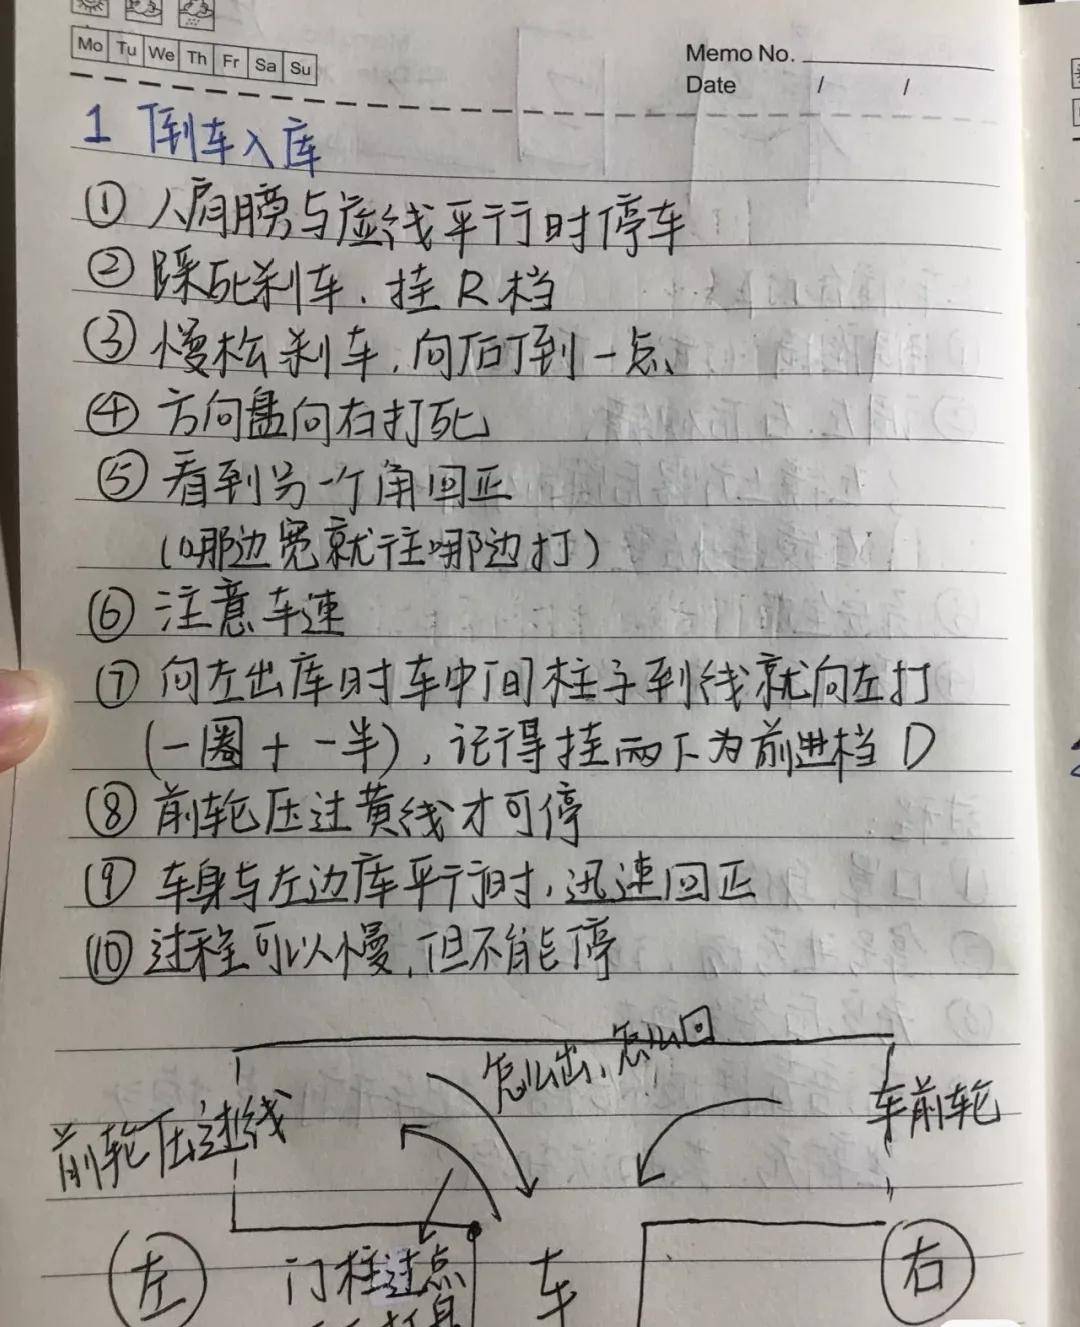 Mo Tu We Th Fr Sa Su
Memo No.
Date / /
1 倒车入库
① 人肩膀与虚线平行时停车
② 踩死刹车.挂R档
③ 慢松刹车,向后倒一点
④ 方向盘向右打死
⑤ 看到另一个角回正
(哪边宽就往哪边打)
⑥ 注意车速
⑦ 向左出库时车中间柱子到线就向左打
(一圈+一半),记得挂两下为前进档D
⑧ 前轮压过黄线才可停
⑨ 车身与左边库平行时,迅速回正
⑩ 过程可以慢,但不能停
怎么出、怎么回
前轮压过线
车前轮
左
门柱过点
车
右